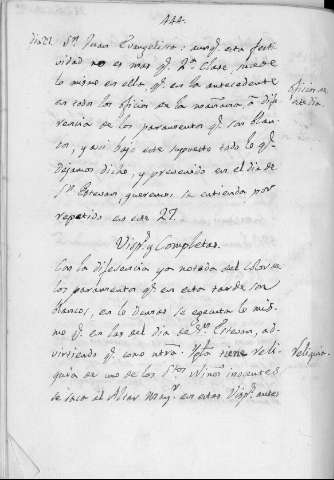 444.
Dia 27. Sn. Juan Evangelista: aunqe. esta fest
vidad no es mas qe. 2ª Clase, sucede
lo mismo en ella, qe. en la antecedente
en todos los oficios de la mañana, a dife
rencia de los paramentos qe. son blan
cos, y asi bajo este supuesto todo lo qe.
dejamos dicho, y prevenido en el dia de
Sn. Estevan, queremos se entienda por
repetido en este 27.
Oficios de
este dia.
Vispˢ. y Completas.
Con la diferencia ya notada del color de
los paramentos qe. en esta tarde son
blancos, en lo demas se egecuta lo mis
mo qe. en las del dia de Sn. Estevan, ad-
virtiendo qe. como ntra. Yglª. tiene reli
quia de uno de los Stos. Niños inocentes
se saca al Altar Mayr. en estas Vispˢ. antes
Reliquia.